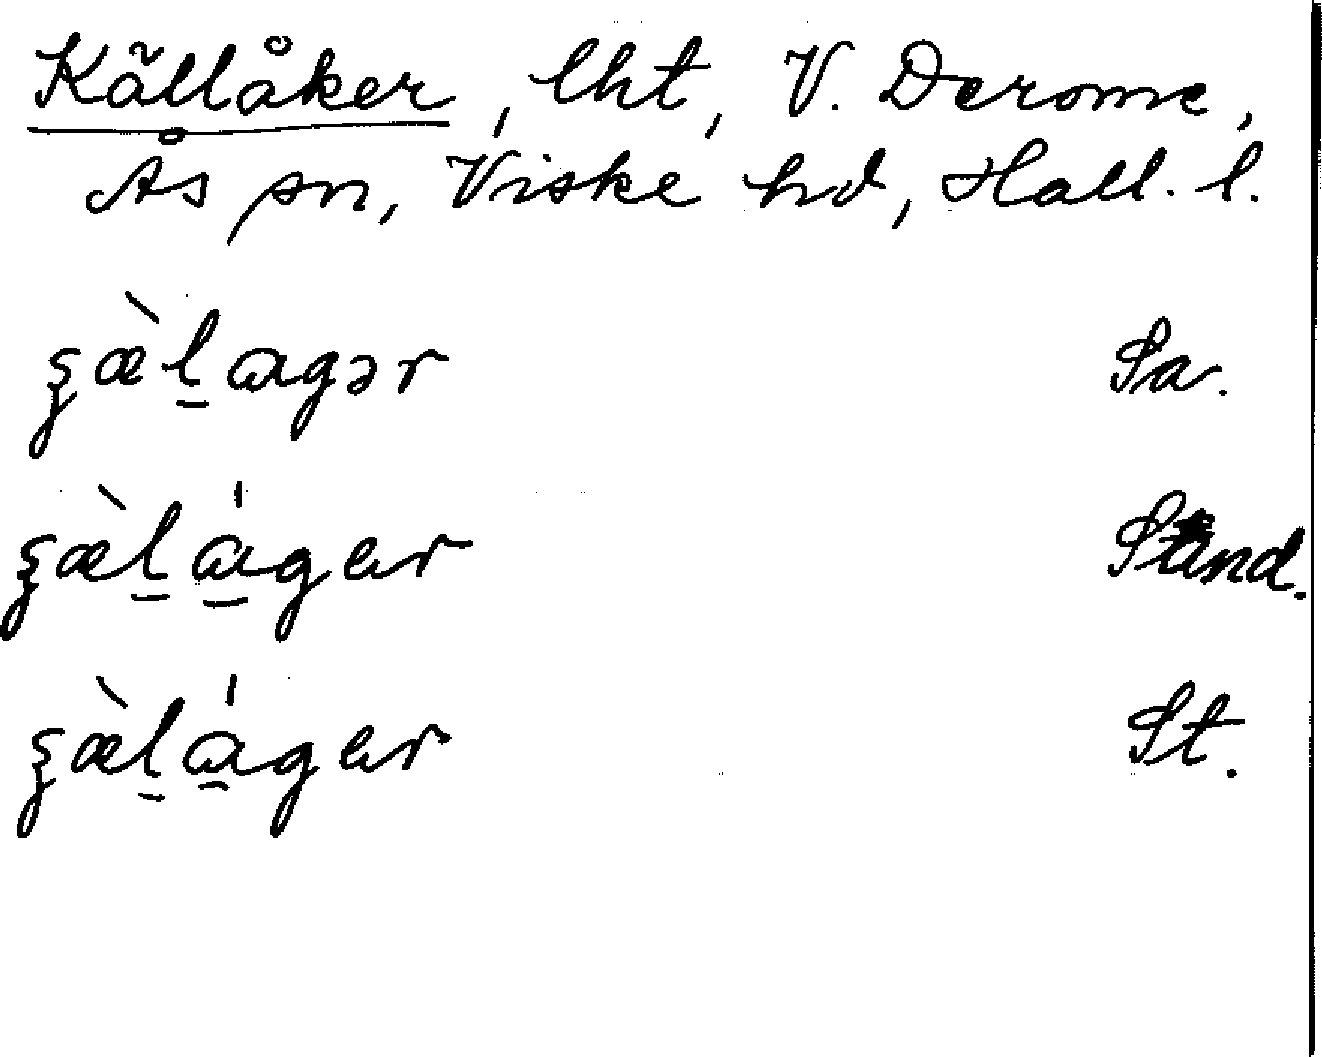 Källåker, lht, V. Derome,
Ås sn, Viske hd, Hall. l.
ʂæ̀l̠agər Sa.
ʂæ̀l̠a̠̍ger Sand.
ʂæ̀l̠a̠̍ger St.